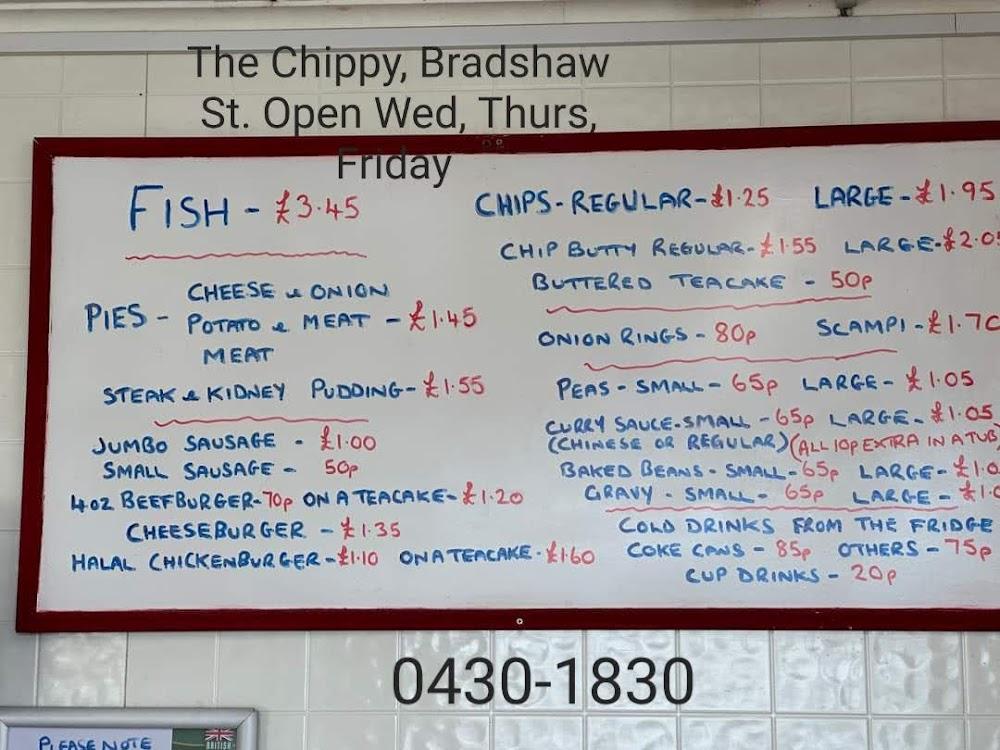 The Chippy, Bradshaw
St. Open Wed, Thurs,
Friday
FISH - £3.45
PIES - CHEESE & ONION
POTATO & MEAT - £1.45
MEAT
STEAK & KIDNEY PUDDING - £1.55
JUMBO SAUSAGE - £1.00
SMALL SAUSAGE - 50p
4oz BEEFBURGER - 70p ON A TEACAKE - £1.20
CHEESEBURGER - £1.35
HALAL CHICKENBURGER - £1.10 ON A TEACAKE - £1.60
CHIPS - REGULAR - £1.25 LARGE - £1.95
CHIP BUTTY REGULAR - £1.55 LARGE - £2.0
BUTTERED TEACAKE - 50p
ONION RINGS - 80p SCAMPI - £1.70
PEAS - SMALL - 65p LARGE - £1.05
CURRY SAUCE - SMALL - 65p LARGE - £1.05
(CHINESE OR REGULAR) (ALL 10p EXTRA IN A TUB
BAKED BEANS - SMALL - 65p LARGE - £1.0
GRAVY - SMALL - 65p LARGE - £1.0
COLD DRINKS FROM THE FRIDGE
COKE CANS - 85p OTHERS - 75p
CUP DRINKS - 20p
0430-1830
PLEASE NOTE
BRITISH